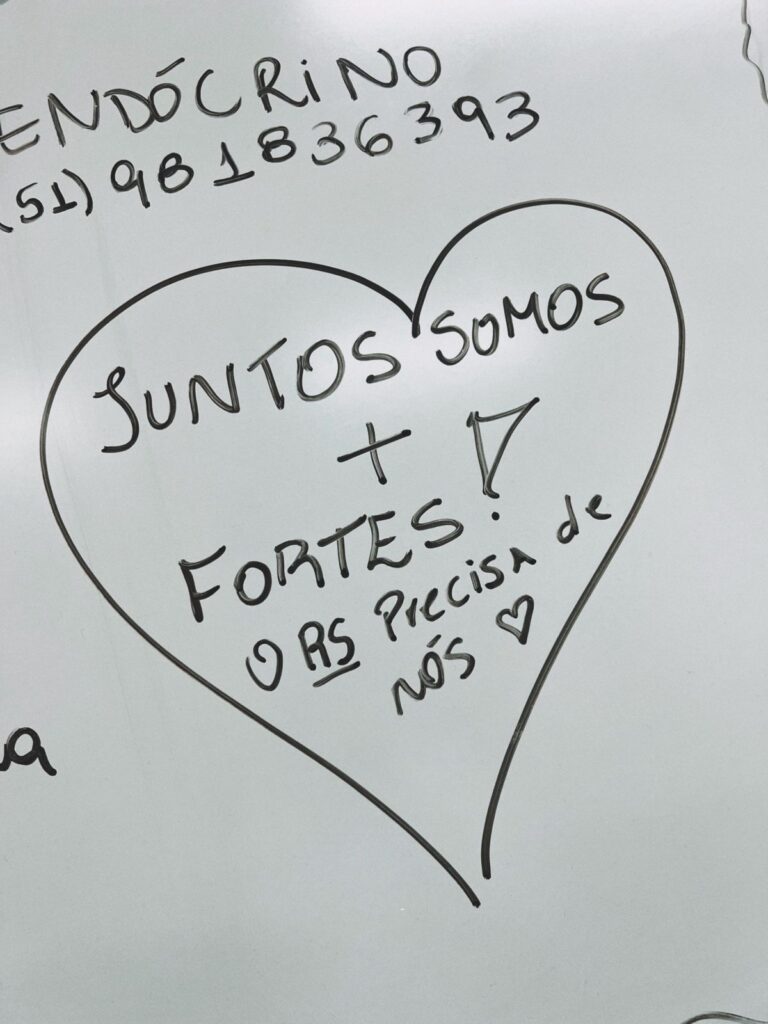 ENDÓCRINO
(51) 981836393
JUNTOS SOMOS
+
FORTES!
O RS Precisa de
NÓS ♡